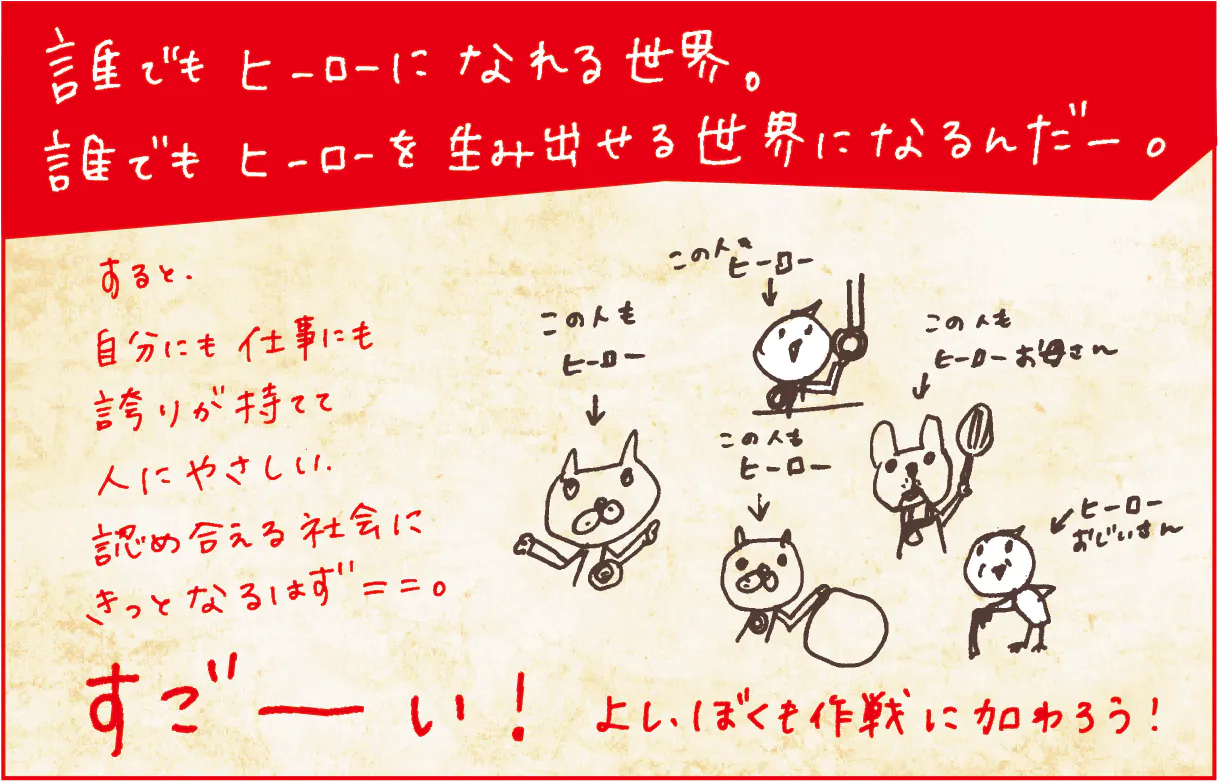 誰でもヒーローになれる世界。
誰でもヒーローを生み出せる世界になるんだー。
すると、
自分にも仕事にも
誇りが持てて
人にやさしい、
認め合える社会に
きっとなるはず゛==。
この人も
ヒーロー
この人も
ヒーロー
この人も
ヒーローお母さん
この人も
ヒーロー
ヒーロー
おじいさん
すご゛ーい!
よし、ぼくも作戦に加わろう!